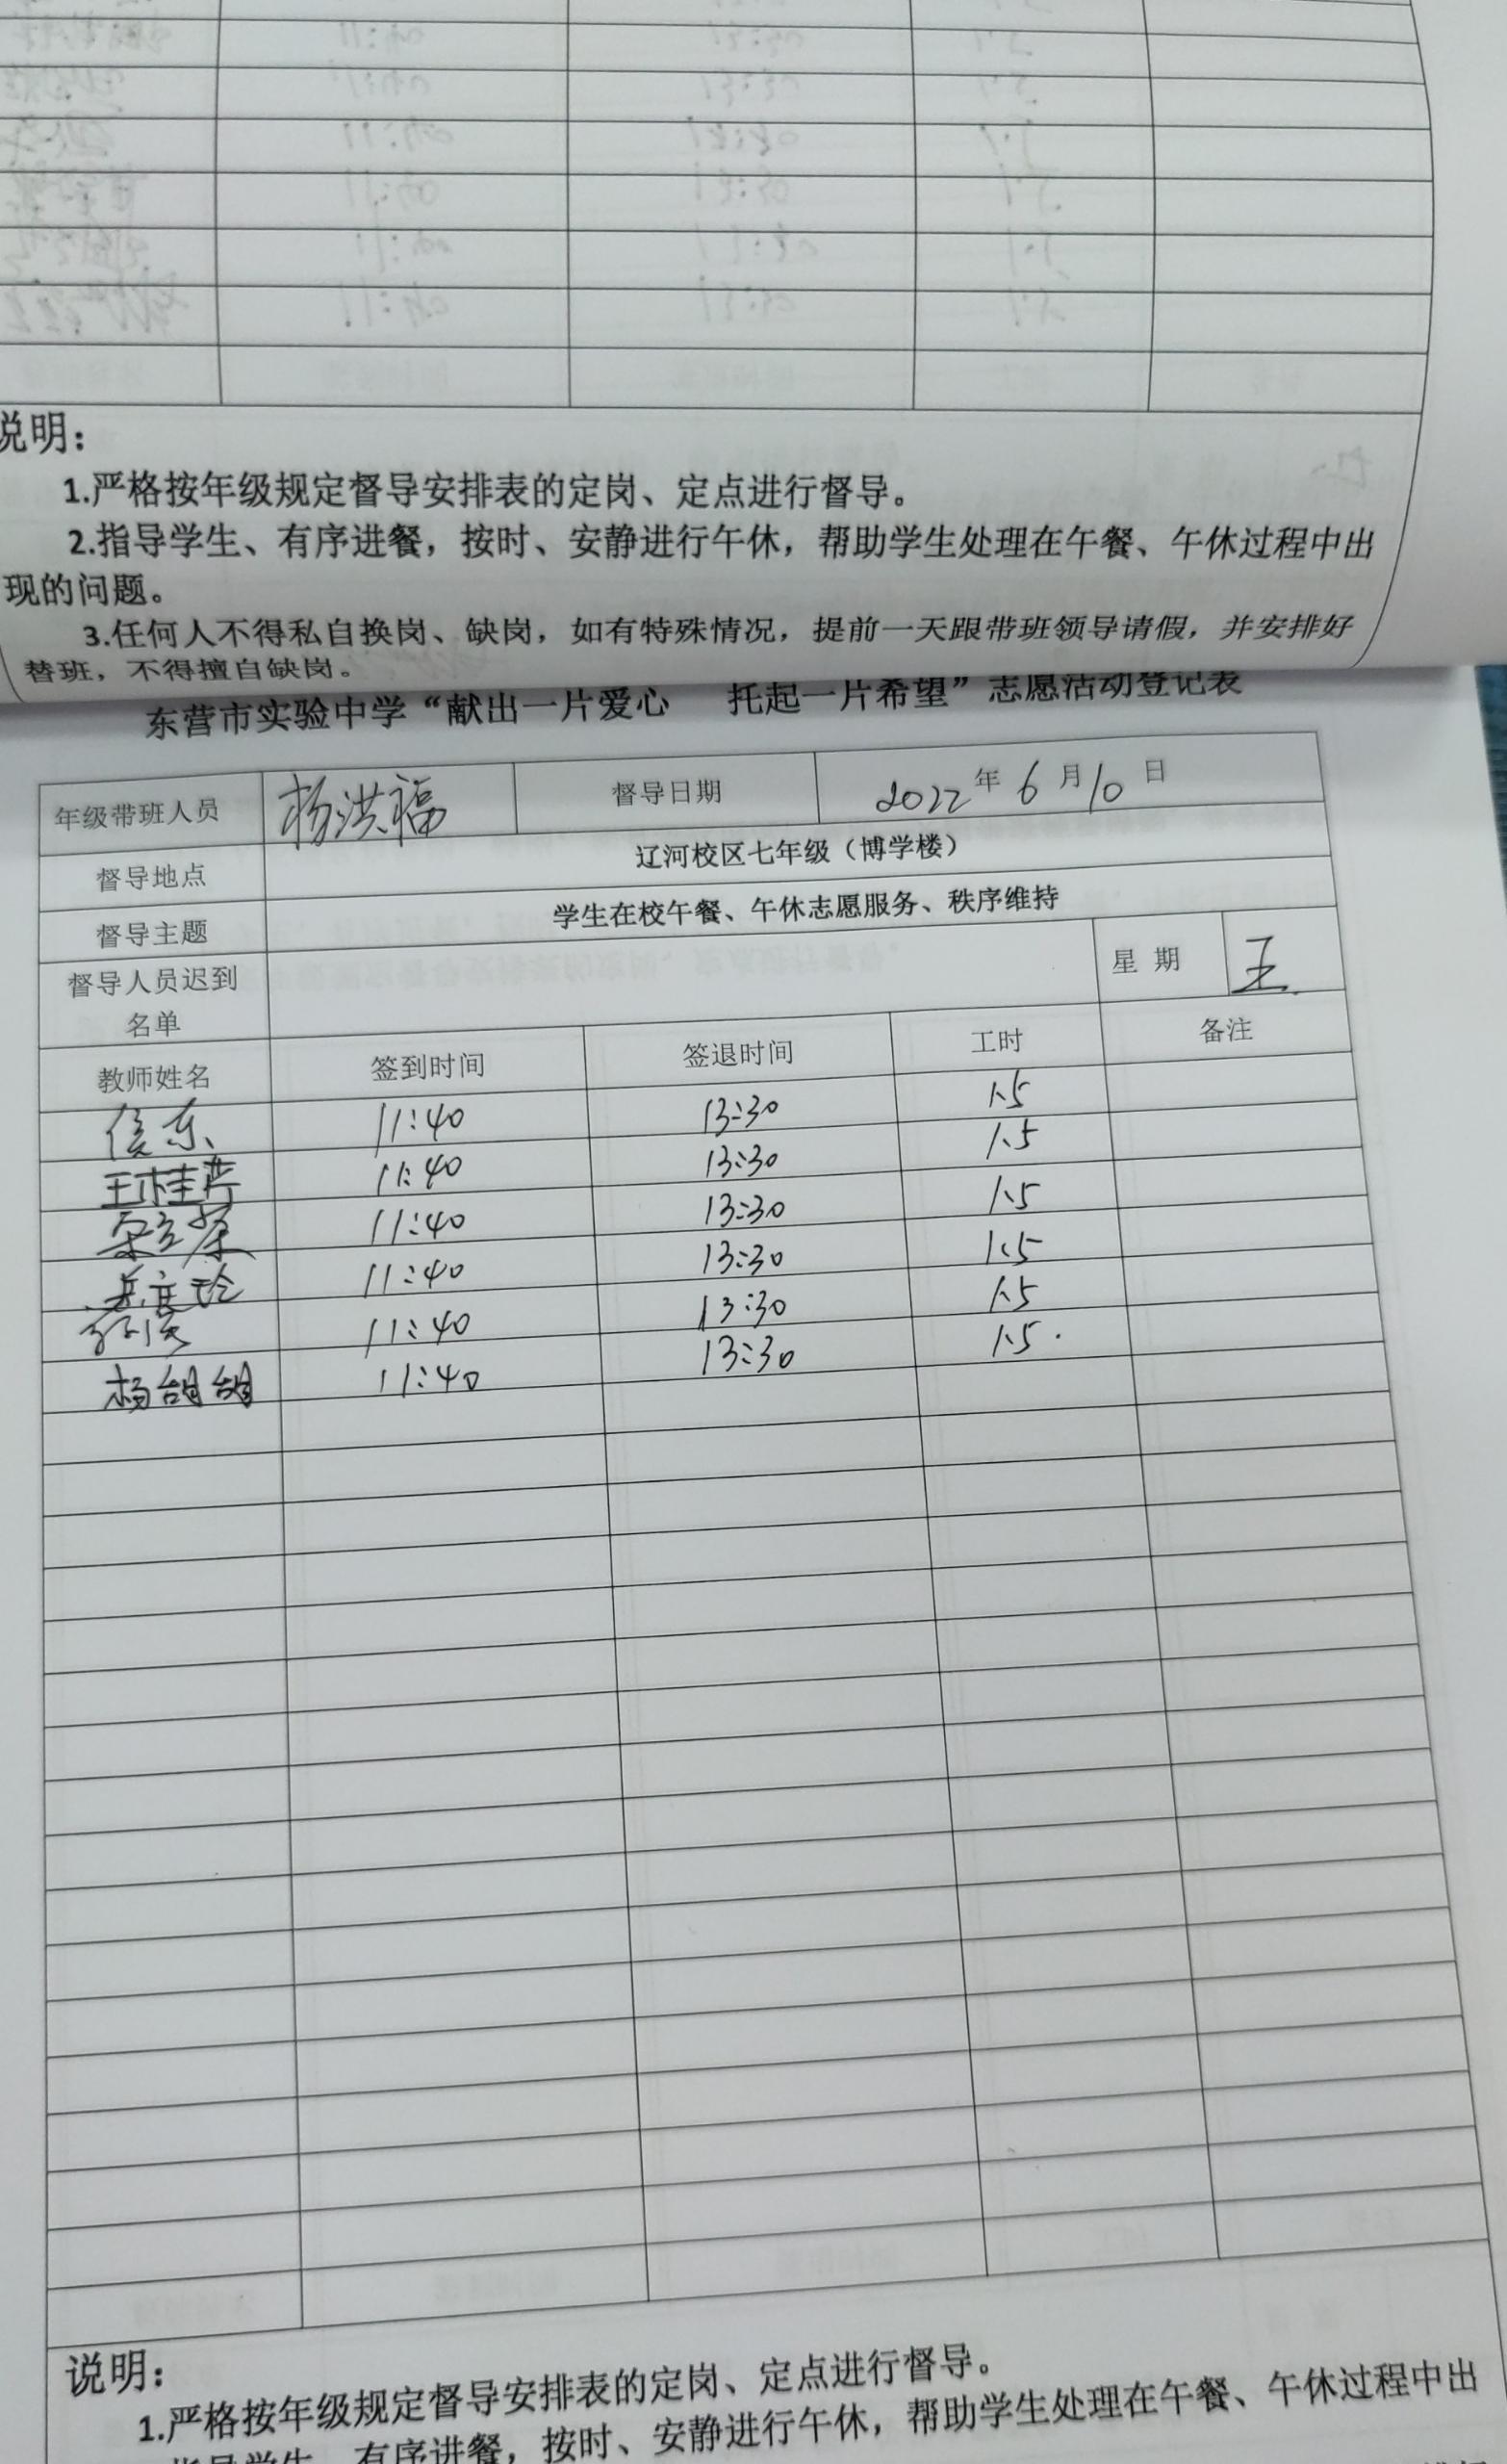 说明：
1.严格按年级规定督导安排表的定岗、定点进行督导。
2.指导学生、有序进餐，按时、安静进行午休，帮助学生处理在午餐、午休过程中出
现的问题。
3.任何人不得私自换岗、缺岗，如有特殊情况，提前一天跟带班领导请假，并安排好
替班，不得擅自缺岗。
东营市实验中学“献出一片爱心 托起一片希望”志愿活动登记表
年级带班人员 杨洪福 督导日期 2022年6月10日
督导地点 辽河校区七年级（博学楼）
督导主题 学生在校午餐、午休志愿服务、秩序维持
督导人员迟到 星 期 五
名单
教师姓名 签到时间 签退时间 工时 备注
11:40 13:30 1.5
王桂芹 11:40 13:30 1.5
11:40 13:30 1.5
11:40 13:30 1.5
11:40 13:30 1.5
杨甜甜 11:40 13:30 1.5
说明：
1.严格按年级规定督导安排表的定岗、定点进行督导。
有序进餐，按时、安静进行午休，帮助学生处理在午餐、午休过程中出